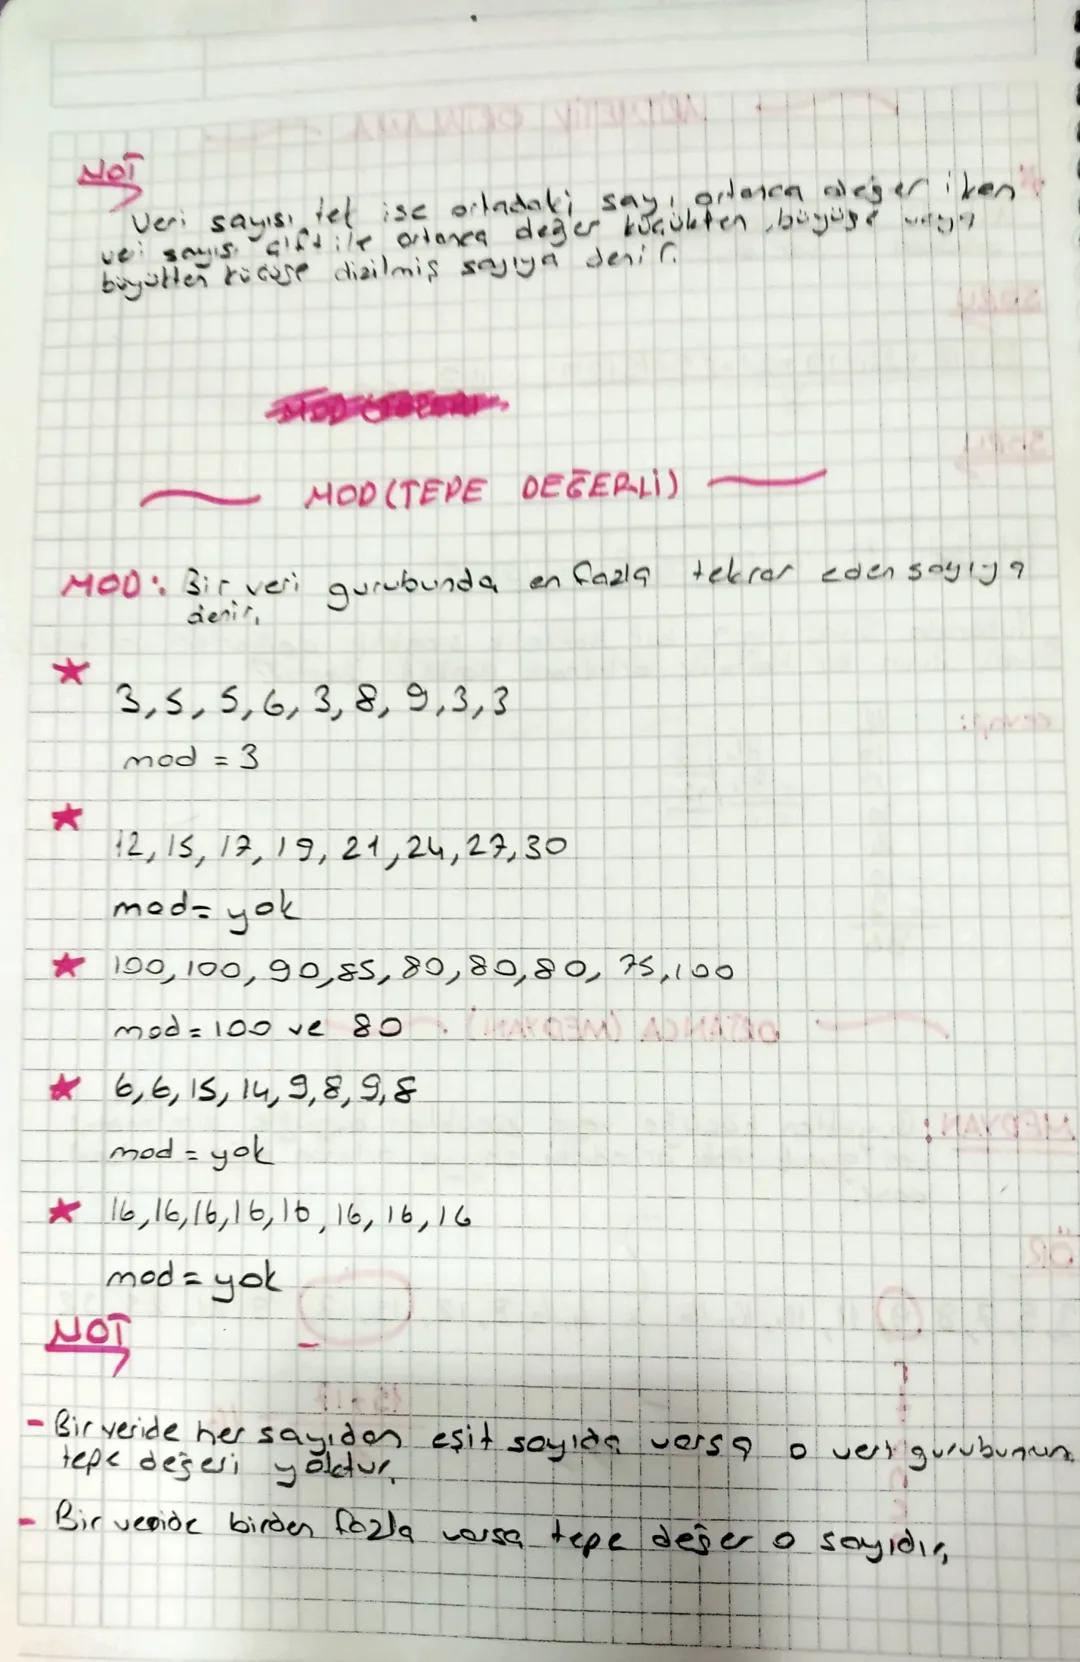 NOT
Veri sayısı tek ise ortadaki sayı ortanca değer iken
veri sayısı çift ile ortanca değer küçükten büyüğe veya
büyükten küçüğe dizilmiş sayıya denir.
MOD (TEPE DEĞERLİ)
MOD: Bir veri gurubunda en fazla tekrar eden sayıya
denir.
3,5,5,6,3,8,9,3,3
mod = 3
12,15,17,19,21,24,27,30
mod= yok
100,100,90,85,80,80,80,75,100
mod=100 ve 80
6,6,15,14,9,8,9,8
mod = yok
16,16,16,16,16,16,16,16
mod= yok
NOT
- Bir veride her sayıdan eşit sayıda varsa o veri gurubunun
tepe değeri yoktur.
- Bir veride birden fazla varsa tepe değer o sayıdır.